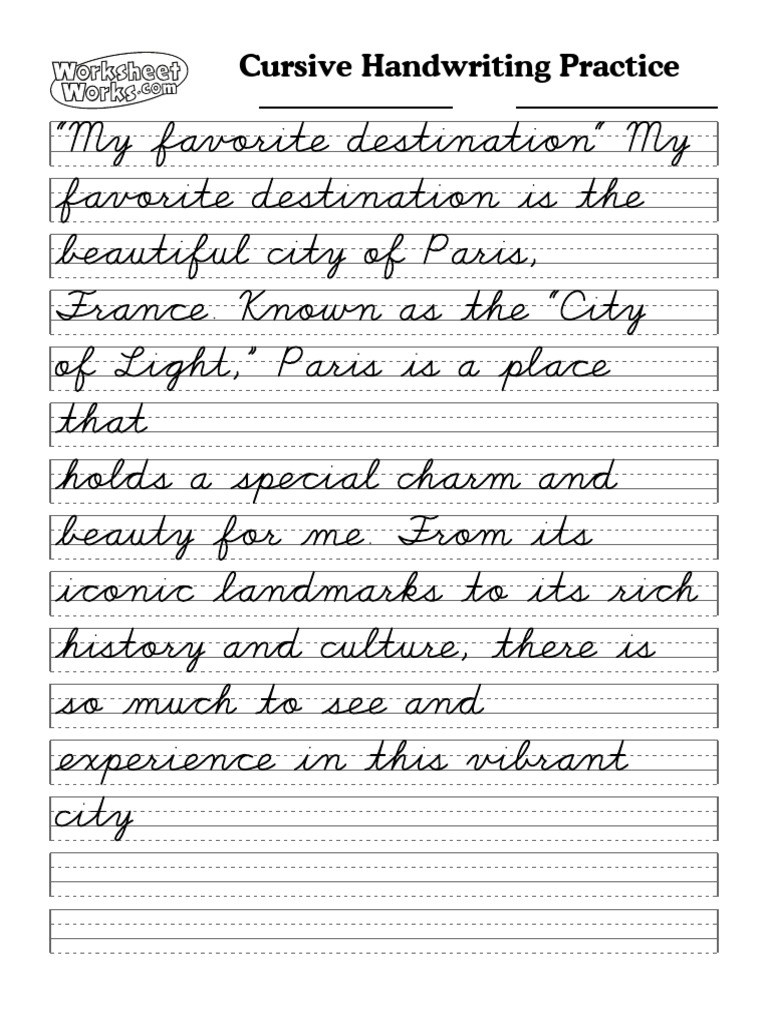 Worksheet
Works.com
Cursive Handwriting Practice
"My favorite destination" My
favorite destination is the
beautiful city of Paris,
France. Known as the "City
of Light," Paris is a place
that
holds a special charm and
beauty for me. From its
iconic landmarks to its rich
history and culture, there is
so much to see and
experience in this vibrant
city